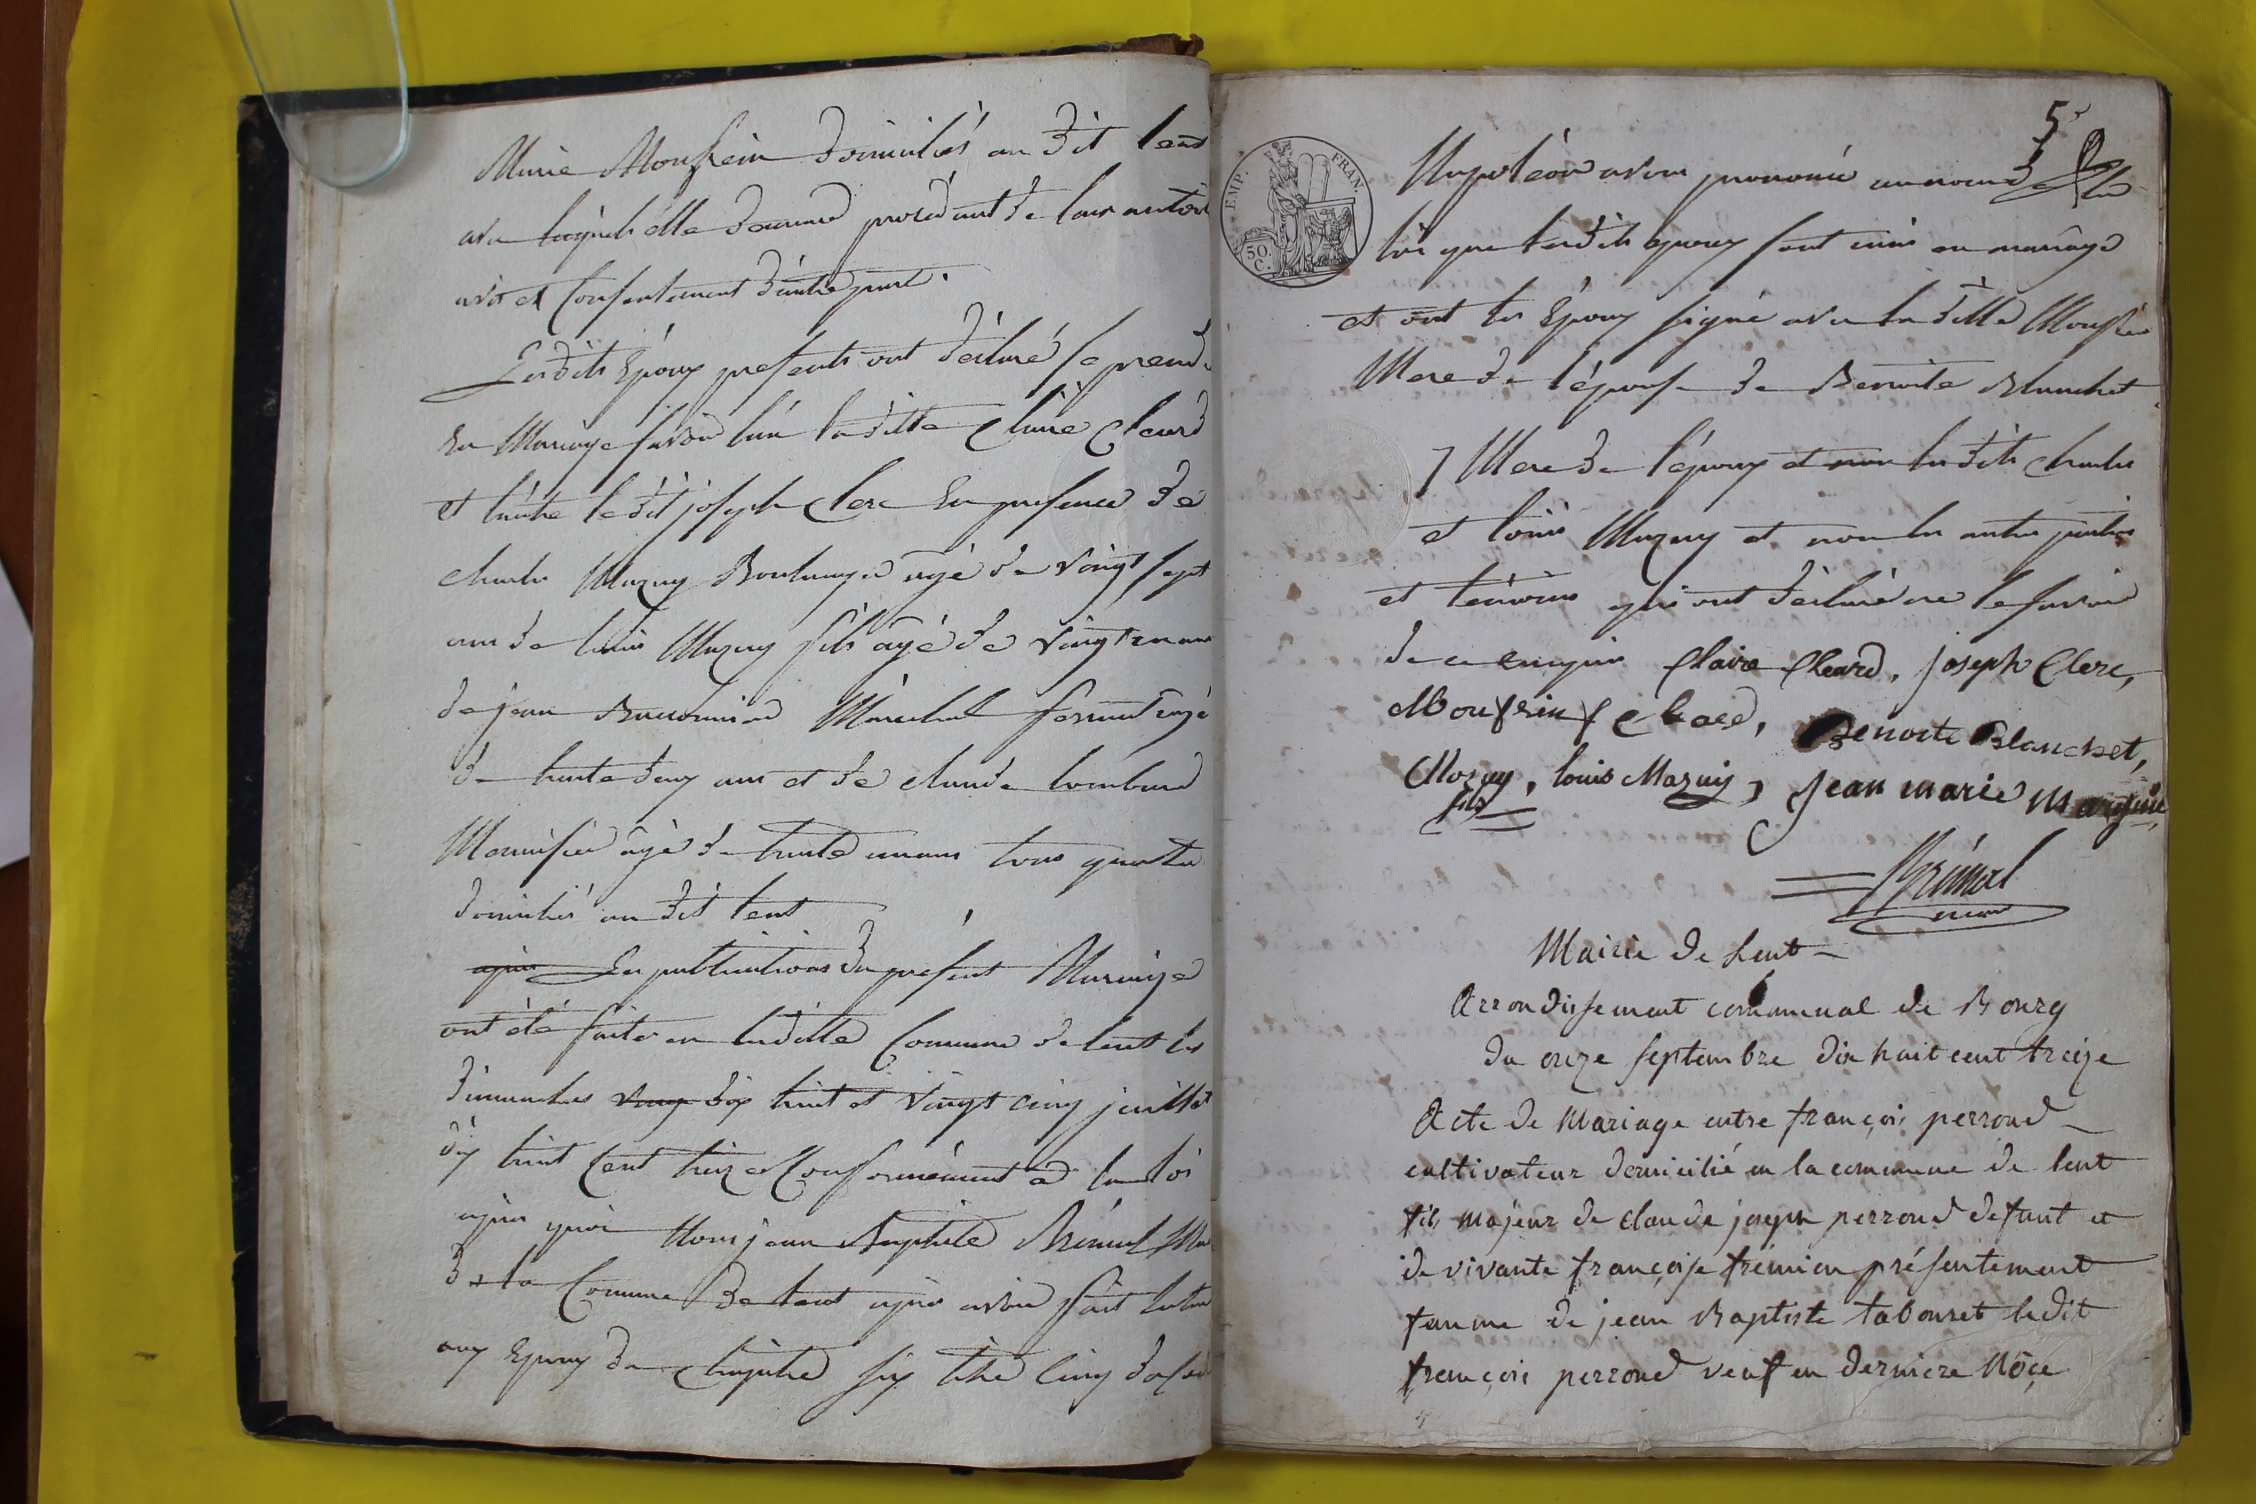 Marie Monfrein domiciliés au dit lent
avec lesquels elle demeure procédant de leur autorité
avis et Consentement d'autre part.
Lesdits Epoux presents ont déclaré se prendre
En Mariage savoir l'un laditte Claire Cleard
et l'autre le dit joseph Clerc En presence de
charles Mazuy Boulanger agé de vingt sept
ans de louis Mazuy fils agé de vingt un ans
de jean Marechal ferrand agé
de trente deux ans et de claude lombard
Menuisier agé de trente un ans tous quatre
domiciliés au dit lent
après Les publications du present Mariage
ont été faites en laditte Commune de lent les
dimanches vingt dix huit et vingt cinq juillet
dix huit Cent treize Conformément a la loi
après quoi Nous jean Baptiste Brémal Maire
de la Commune de lent après avoir fait lecture
aux Epoux du chapitre six titre cinq du Code
5
EMP. FRAN.
50. C.
Napoléon avons prononcé au nom de la
loi que lesdits epoux sont unis en mariage
et ont les Epoux signé avec laditte Monfrein
Mere de l'épouse de Benoite Blanchet
Mere de l'époux et non lesdits charles
et louis Mazuy et non les autres parties
et témoins qui ont déclaré ne le savoir
de ce enquis Claire Cleard, joseph Clerc,
Monfrein f Cleard, Benoite Blanchet,
Mazuy, louis Mazuy, Jean marie
fils
Brémal
maire
Mairie de Lent
Arrondissement communal de Bourg
du onze septembre dix huit cent treize
Acte de Mariage entre françois perroud
cultivateur domicilié en la commune de lent
fils majeur de claude joseph perroud defunt et
de vivante françoise frémion présentement
femme de jean Baptiste tabouret ledit
françois perroud veuf en derniere Nôçe